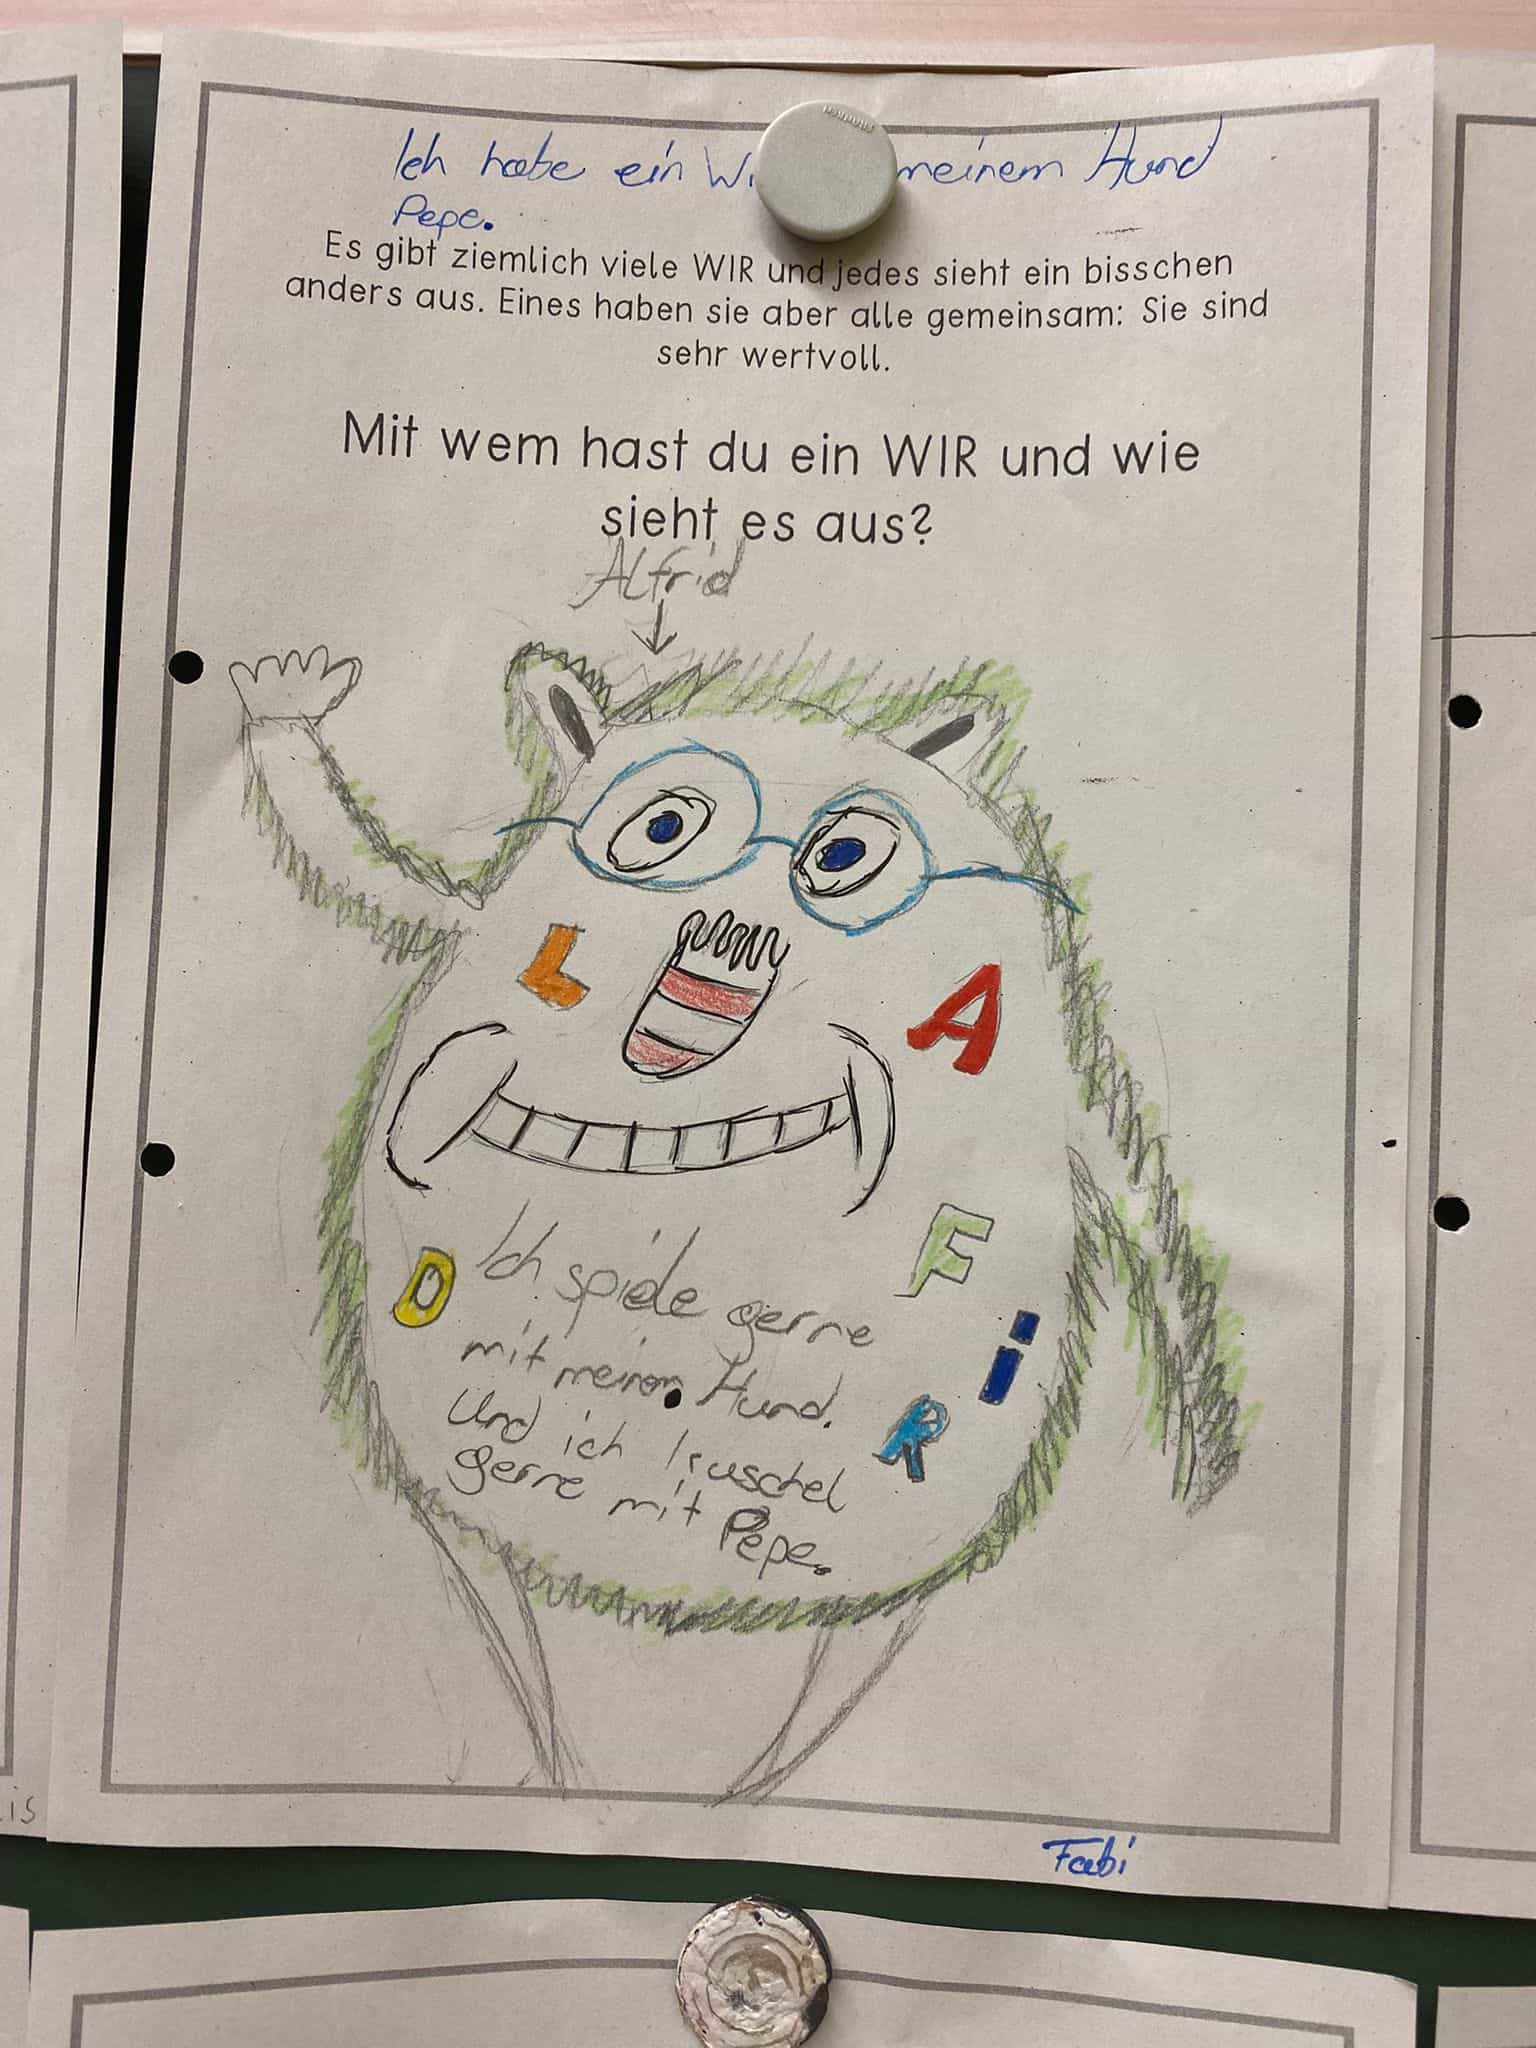 Ich habe ein meinem Hund
Pepe.
Es gibt ziemlich viele WIR und jedes sieht ein bisschen
anders aus. Eines haben sie aber alle gemeinsam: Sie sind
sehr wertvoll.
Mit wem hast du ein WIR und wie
sieht es aus?
Alfrid
L
A
F
D
i
R
Ich spiele gerne
mit meinem Hund.
Und ich kuschel
gerne mit Pepe.
Fabi